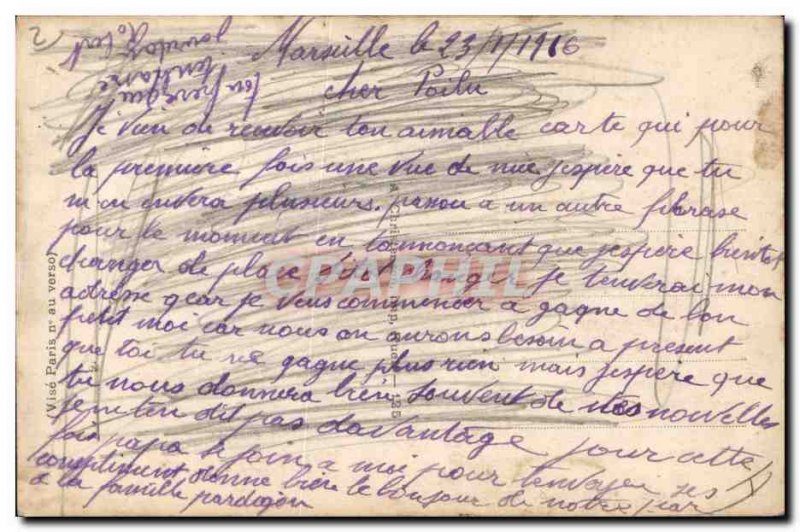 2
Marseille le 23/1/1916
cher Poilu
Je vien de recevoir ton aimable carte qui pour
la première fois une vue de nue jespère que tu
m en envera plusieurs. passon a un autre phrase
pour le moment en tannonçant que jespère bientot
changer de place je tenverai mon
adrèse car je veus commencer a gagné de bon
petit moi car nous en aurons besoin a present
que toi tu ne gagne plus rien mais jespère que
tu nous donnera bien souvent de tes nouvelles
je ne ten dit pas davantage pour cette
fois papa se join a moi pour tenvoyer ses
compliment donne bien le bonjour de notre par
a la famille pardigon
ton frère qui
Robert
(Visé Paris n° au verso)
CPAPHIL